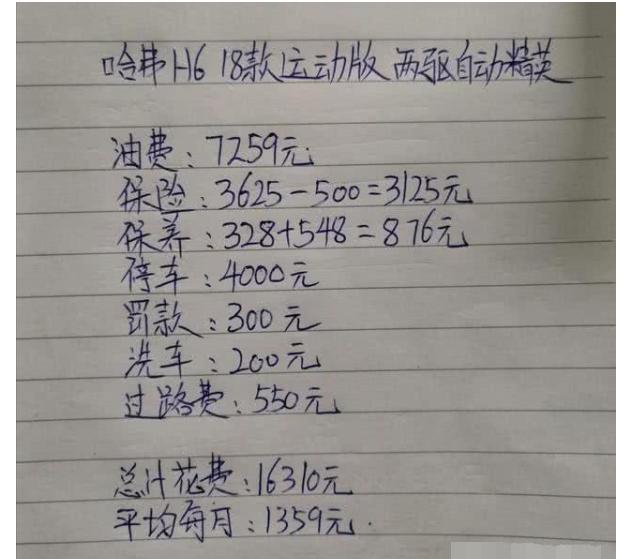 哈弗H6 18款运动版 两驱自动精英
油费：7259元
保险：3625-500=3125元
保养：328+548=876元
停车：4000元
罚款：300元
洗车：200元
过路费：550元
总计花费：16310元
平均每月：1359元.